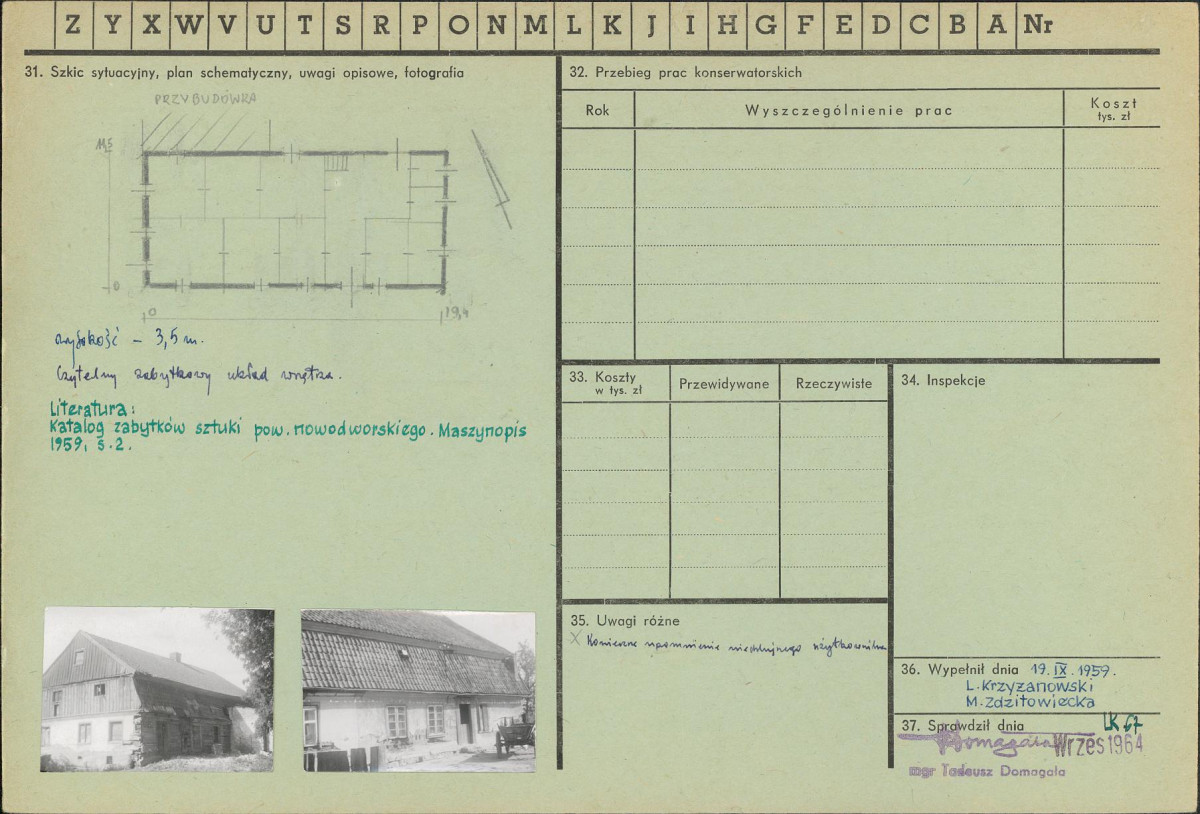 Z Y X W V U T S R P O N M L K J I H G F E D C B A Nr
31. Szkic sytuacyjny, plan schematyczny, uwagi opisowe, fotografia
PRZYBUDÓWKA
11,5
0
0
19,4
wysokość – 3,5 m.
Czytelny zabytkowy układ wnętrza.
Literatura:
Katalog zabytków sztuki pow. nowodworskiego. Maszynopis
1959, s. 2.
32. Przebieg prac konserwatorskich
Rok
Wyszczególnienie prac
Koszt
tys. zł
33. Koszty
w tys. zł
Przewidywane
Rzeczywiste
34. Inspekcje
35. Uwagi różne
X Konieczne upomnienie niechlujnego użytkownika
36. Wypełnił dnia 19.IX.1959.
L. Krzyżanowski
M. Zdzitowiecka
37. Sprawdził dnia LK 67
TDomagała Wrzes 1964
mgr Tadeusz Domagała